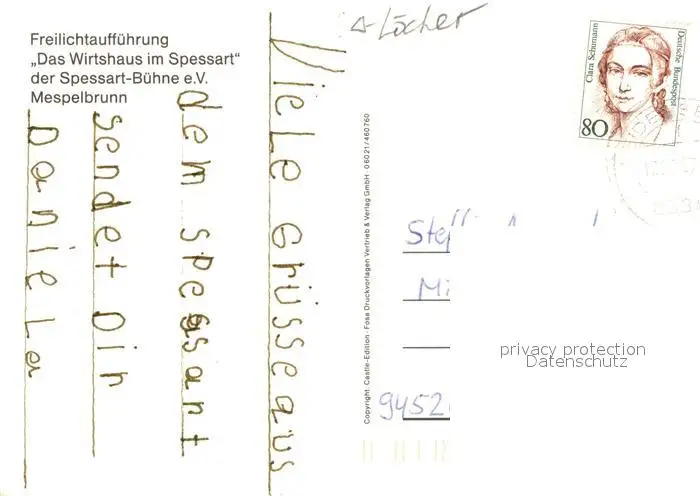 Freilichtaufführung
„Das Wirtshaus im Spessart“
der Spessart-Bühne e.V.
Mespelbrunn
Viele Grüsse aus
dem Spessart
sendet Dir
Daniela
Löcher
Clara Schumann
Deutsche Bundespost
80
Copyright: Castle-Edition · Fosa Druckvorlagen Vertrieb & Verlag GmbH · 06021/460760
Mi
9452
privacy protection
Datenschutz